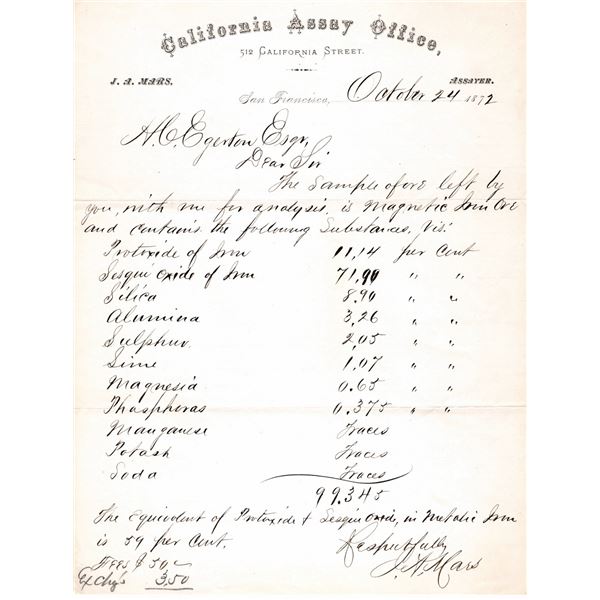 California Assay Office,
512 CALIFORNIA STREET.
J. A. MARS.
ASSAYER.
San Francisco, October 24 1872
H. C. Egerton Esqr,
Dear Sir
The Sample of ore left by
you, with me for analysis is Magnetic Iron Ore
and contains the following Substances, Viz:
Protoxide of Iron 11,14 per Cent
Sesqui oxide of Iron 71,90 " "
Silica 8.90 " "
Alumina 3,26 " "
Sulphur 2,05 " "
Lime 1,07 " "
Magnesia 0.65 " "
Phosphoras 0.375 " "
Manganese Traces
Potash Traces
Soda Traces
99.345
The Equivolent of Protoxide & Sesqui oxide, in Metalic Iron
is 59 per Cent.
Respectfully
J. A. Mars
Fees $ 50
Ex Chgs 3.50